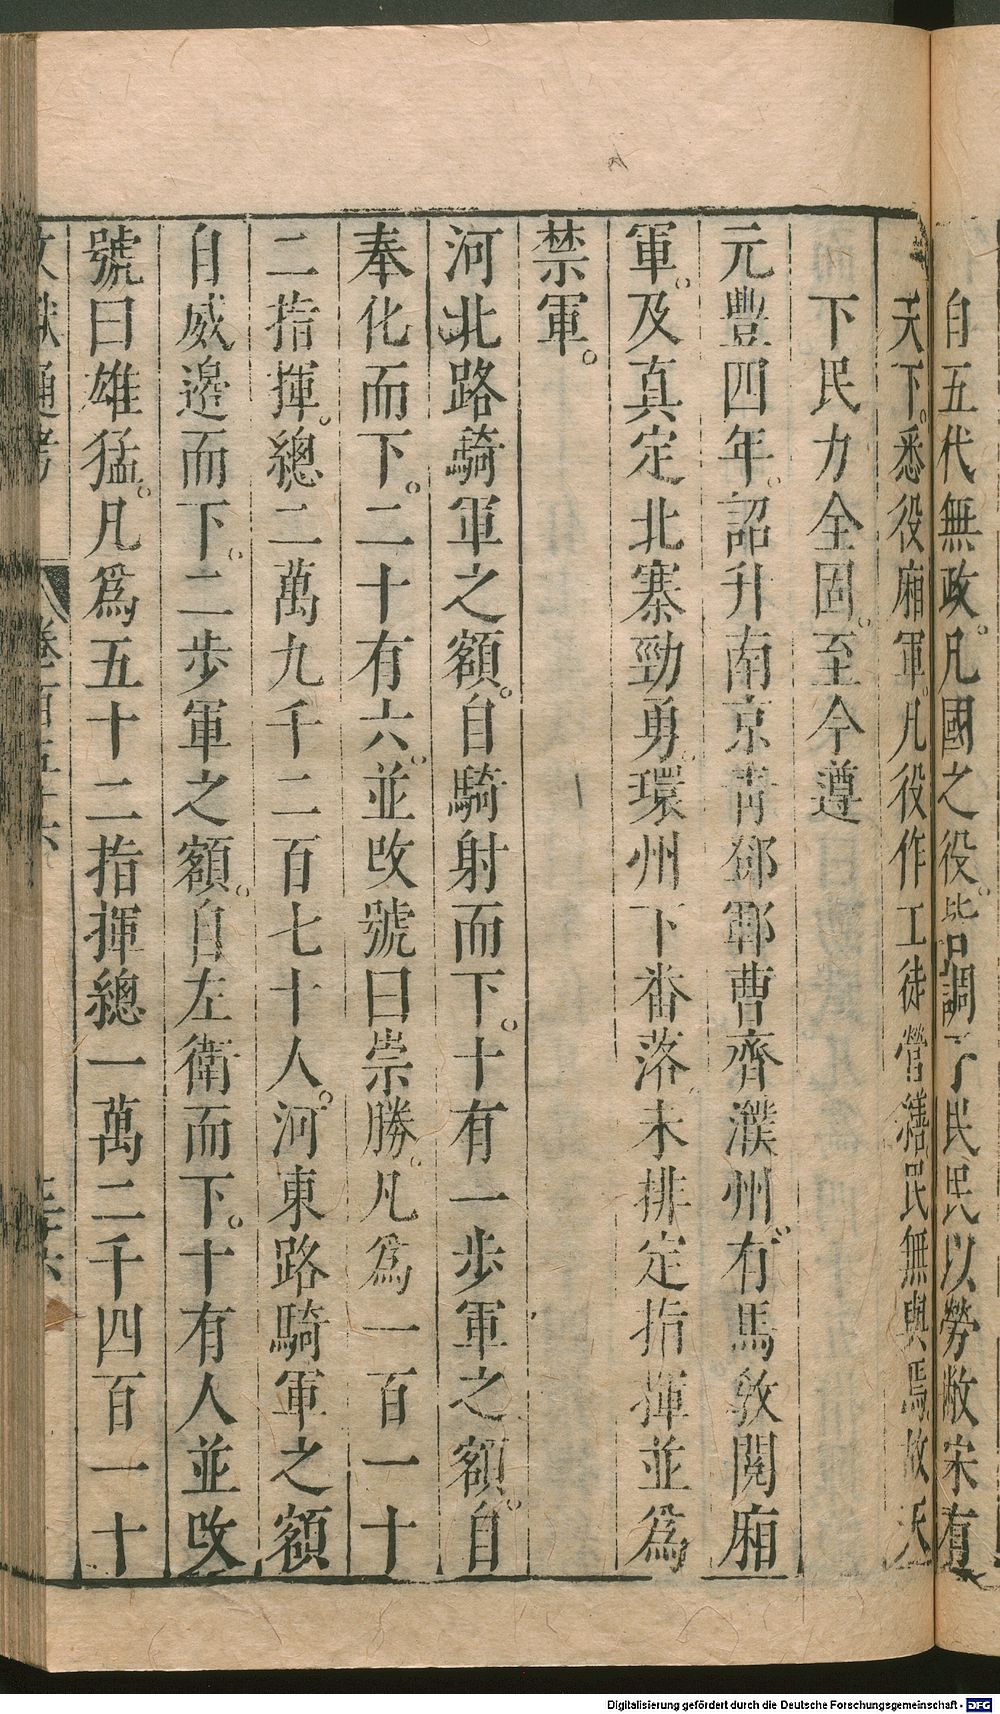 自五代無政。凡國之役。皆調了民民以勞敝宋有
天下。悉役廂軍。凡役作工徒營繕民無與焉故天
下民力全固。至今遵
元豐四年。詔升南京靑鄧鄆曹齊濮州。有馬敎閱廂
軍。及真定北寨勁勇。環州下番落未排定指揮並爲
禁軍。
河北路騎軍之額。自騎射而下。十有一步軍之額。自
奉化而下。二十有六。並改號曰崇勝。凡爲一百一十
二指揮。總二萬九千二百七十人。河東路騎軍之額
自威邊而下。二步軍之額。自左衛而下。十有人並改
號曰雄猛。凡爲五十二指揮總一萬二千四百一十
文獻通考 卷百五十六
Digitalisierung gefördert durch die Deutsche Forschungsgemeinschaft - DFG